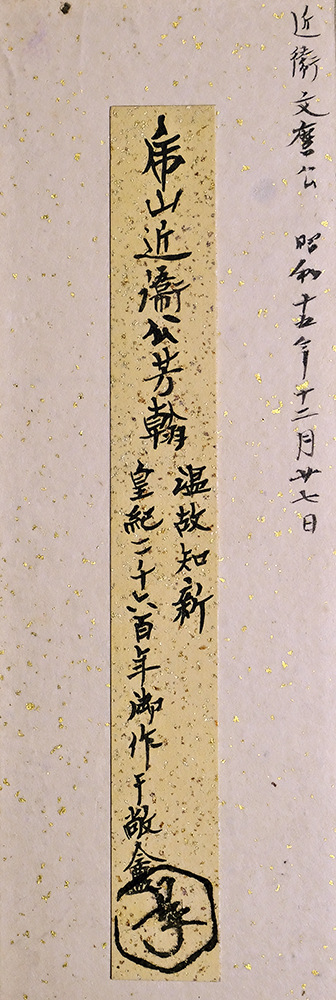 近衛文麿公 昭和十五年十二月廿七日
山近衛公芳翰
温故知新
皇紀二千六百年御作于敝盦